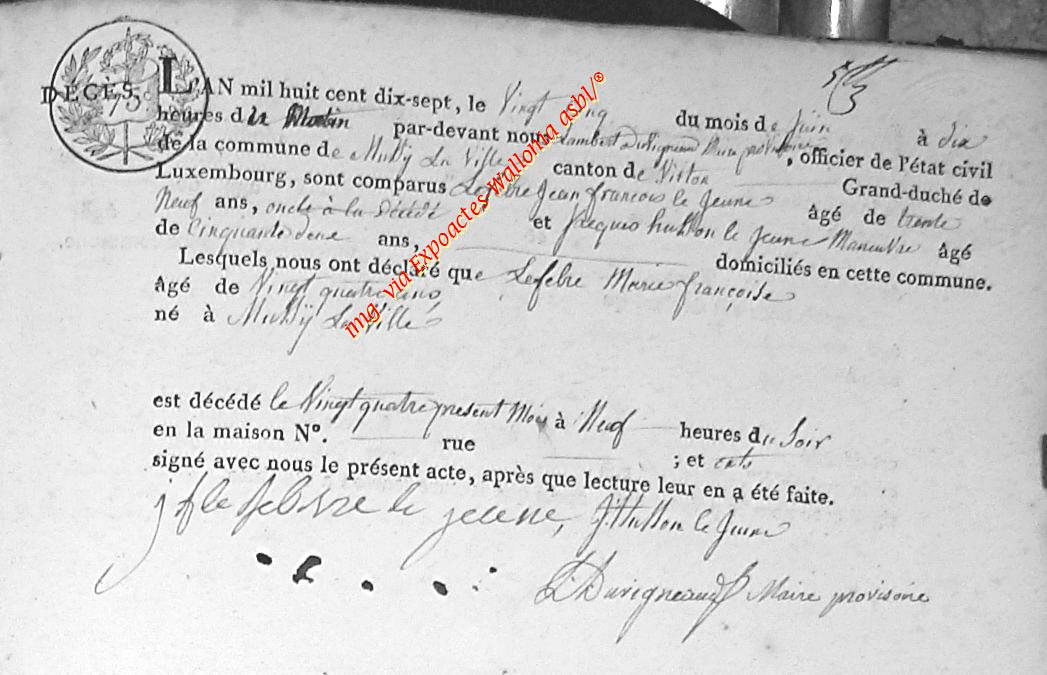 DÉCÈS
75c
L'AN mil huit cent dix-sept, le Vingt cinq du mois de juin à dix
heures du Matin par-devant nous Lambert Duvigneaud Maire provisoire, officier de l'état civil
de la commune de Mussy La Ville canton de Virton Grand-duché de
Luxembourg, sont comparus Lefebre Jean francois le jeune âgé de trente
Neuf ans, oncle à la Décédé et Jacques husson le jeune Maneuvre âgé
de Cinquante deux ans, domiciliés en cette commune.
Lesquels nous ont déclaré que Lefebre Marie françoise
âgé de Vingt quatre ans
né à Mussÿ La Ville
est décédé le Vingt quatre present Mois à Neuf heures du Soir
en la maison N°. rue ; et ont
signé avec nous le présent acte, après que lecture leur en a été faite.
j f le febvre le jeune, J. Husson le Jeune
L. Duvigneaud Maire provisoire
img- via Expoactes Wallonia asbl/®